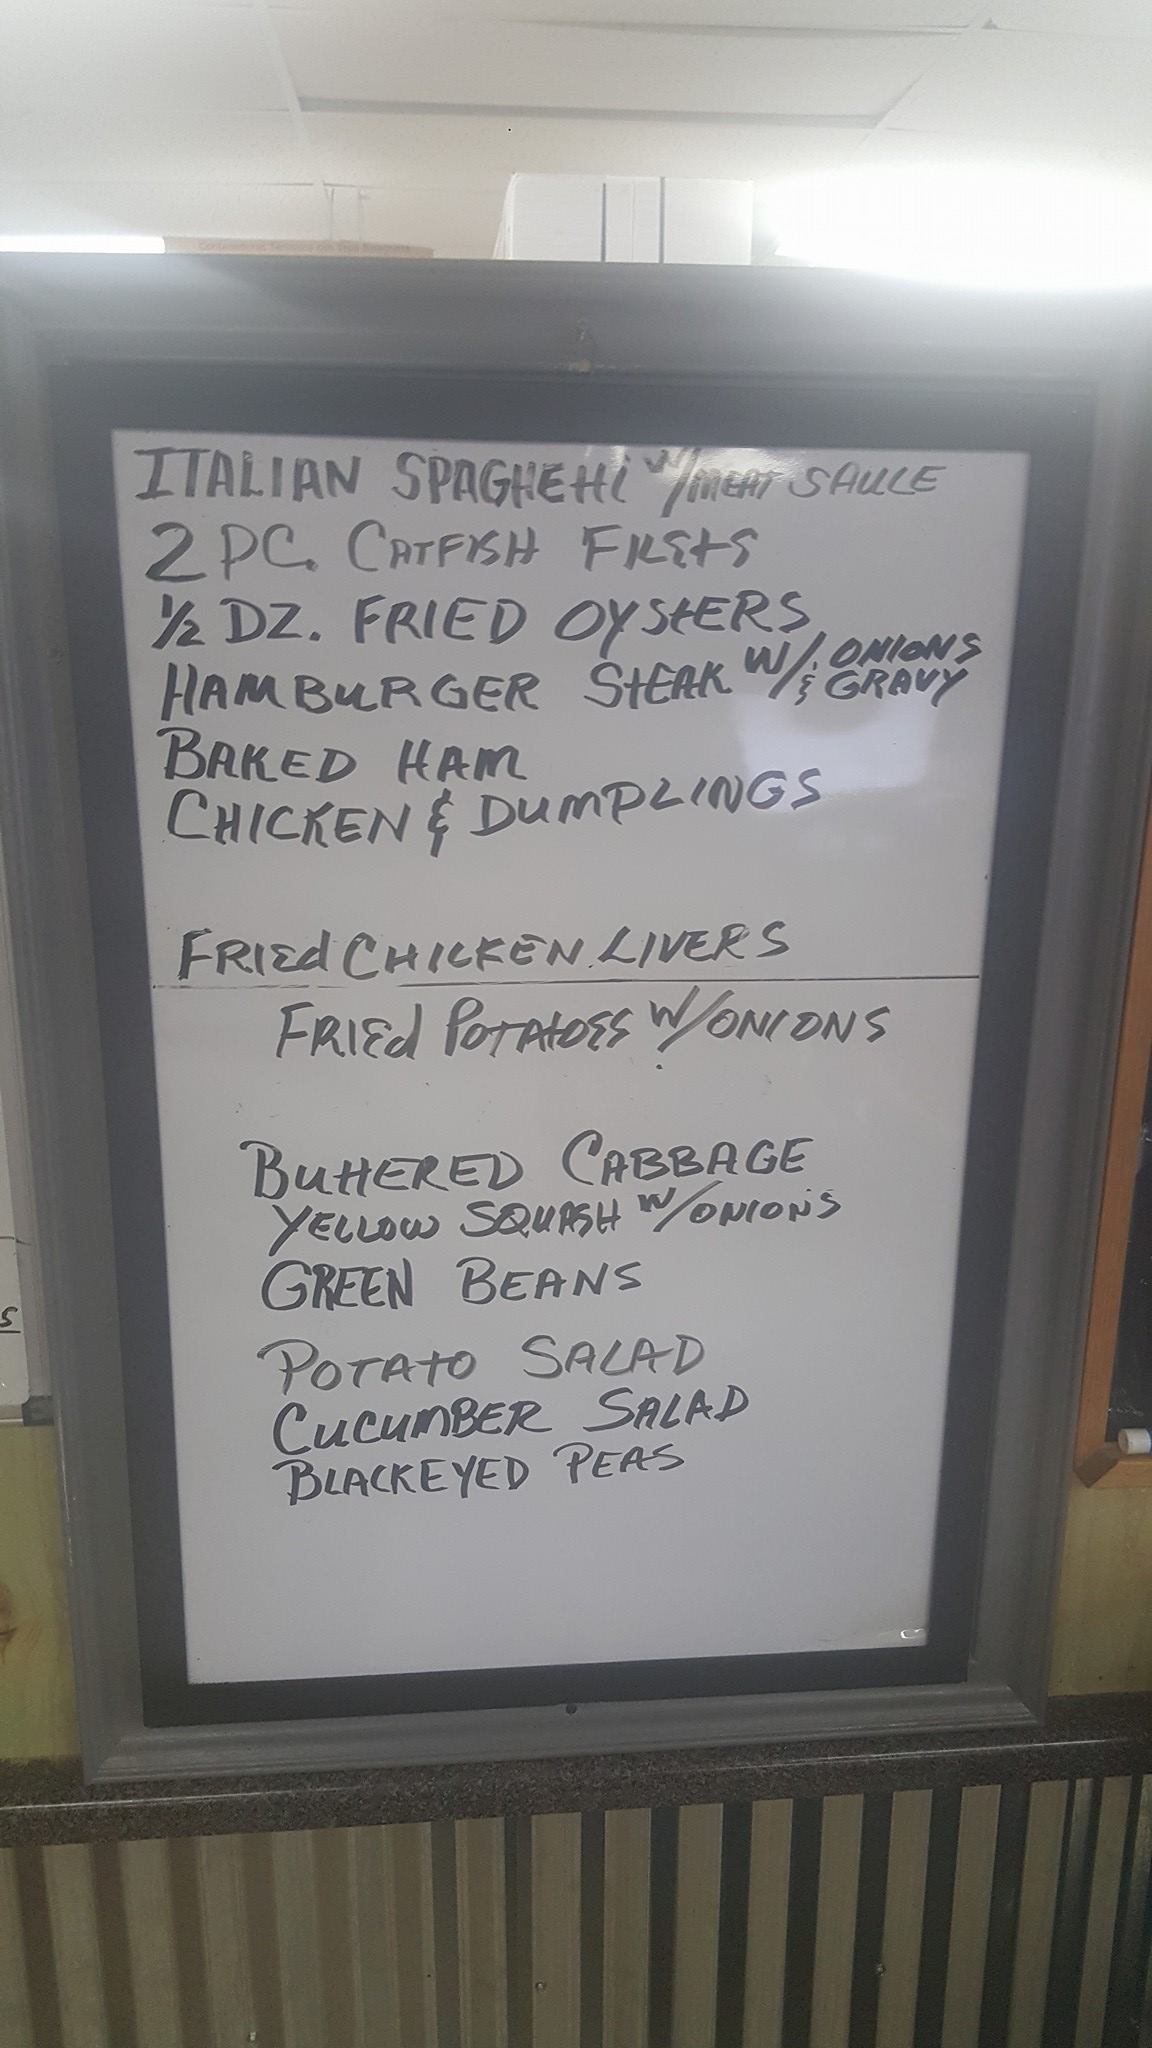 ITALIAN SPAGHEtti w/MEAT SAUCE
2 PC. CATFISH FILEtS
1/2 DZ. FRIED OYStERS
HAMBURGER StEAK W/ ONIONS
& GRAVY
BAKED HAM
CHICKEN & DUMPLINGS
FRIEd CHICKEN LIVERS
FRIEd POTAtOES W/ONIONS
BUttERED CABBAGE
YELLOW SQUASH W/ONIONS
GREEN BEANS
POTAtO SALAD
CUCUMBER SALAD
BLACKEYED PEAS
S